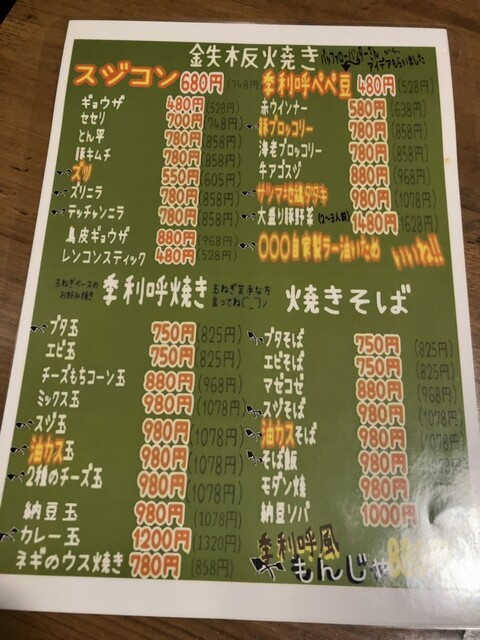 鉄板火焼き
スジコン 680円 (748円)
ギョウザ 480円 (528円)
セセリ 700円
とん平 780円 (858円)
豚キムチ 780円 (858円)
ズリ 550円 (605円)
ズリニラ 780円 (858円)
テッチャンニラ 780円 (858円)
鳥皮ギョウザ 880円 (968円)
レンコンスティック 480円 (528円)
季利呼ペペ豆 480円 (528円)
赤ウインナー 580円 (638円)
豚ブロッコリー 780円 (858円)
海老ブロッコリー 780円 (858円)
牛アゴスジ 880円 (968円)
サツマ地鶏タタキ 980円 (1078円)
大盛り豚野菜 (2〜3人前) 1480円
〇〇〇自家製ラー油いため いいね!!
玉ねぎベースの
お好み焼き
季利呼焼き
玉ねぎ苦手な方
言ってね
ブタ玉 750円 (825円)
エビ玉 750円 (825円)
チーズもちコーン玉 880円 (968円)
ミックス玉 980円 (1078円)
スジ玉 980円 (1078円)
油カス玉 980円 (1078円)
2種のチーズ玉 980円 (1078円)
納豆玉 980円 (1078円)
カレー玉 1200円 (1320円)
ネギのウス焼き 780円 (858円)
焼きそば
ブタそば 750円 (825円)
エビそば 750円 (825円)
マゼコゼ 880円 (968円)
スジそば 980円
油カスそば 980円
そば飯 980円
モダン焼 980円
納豆ソバ 1000円
季利呼風
もんじゃ